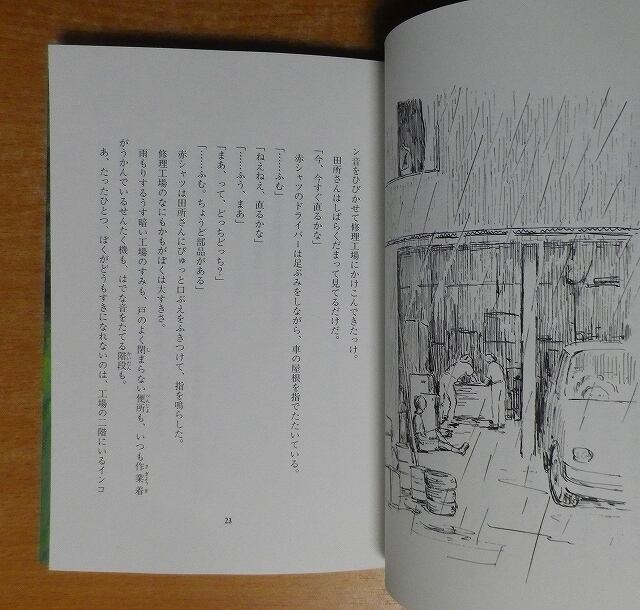 ン音をひびかせて修理工場にかけこんできたっけ。
田所さんはしばらくだまって見てるだけだ。
「今、今すぐ直るかな」
赤シャツのドライバーは足ぶみをしながら、車の屋根を指でたたいている。
「……ふむ」
「ねえねえ、直るかな」
「……ふう、まあ」
「まあ、って、どっちどっち？」
「……ふむ。ちょうど部品がある」
赤シャツは田所さんにぴゅっと口ぶえをふきつけて、指を鳴らした。
修理工場のなにもかもがぼくは大すきさ。
雨もりするうす暗い工場のすみも、戸のよく閉まらない便所も、いつも作業着
がうかんでいるせんたく機も、はでな音をたてる階段も。
あ、たったひとつ、ぼくがどうもすきになれないのは、工場の二階にいるインコ
23